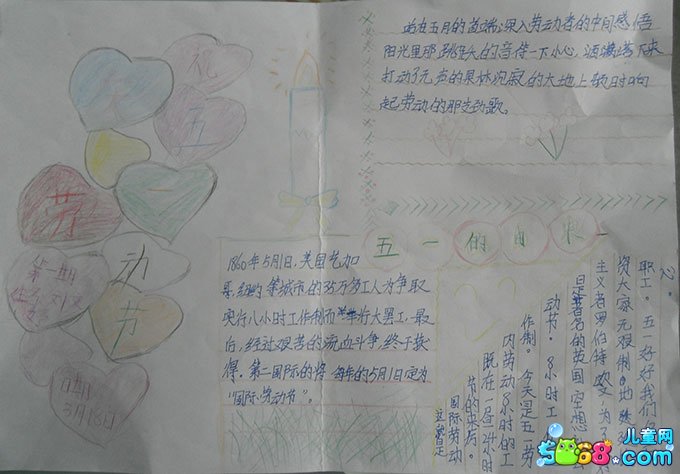 祝
五
一
劳
动
节
第一期
日期
3月18日
站在五月的首端,深入劳动者的中间感悟
阳光里那
大的音
一下小心,洒
落下来
打动了
的果林沉寂的大地上顿时响
起劳动的那支劲歌。
五一的由来
1860年5月1日,美国芝加
哥,纽约等城市的35万多工人为争取
实行八小时工作制而举行大罢工,最
后,经过艰苦的流血斗争,终于获
得。第一国际的将每年的5月1日定为
“国际劳动节”。
心。
职工。五一好好我们
资大家无限制地
主义者罗伯特欧文为了
是著名的英国空想
动节。8小时工
作制。今天是五一劳
内劳动8小时的工
既在一昼24小时
节的来历。
国际劳动
这就是
5068.com
儿童网